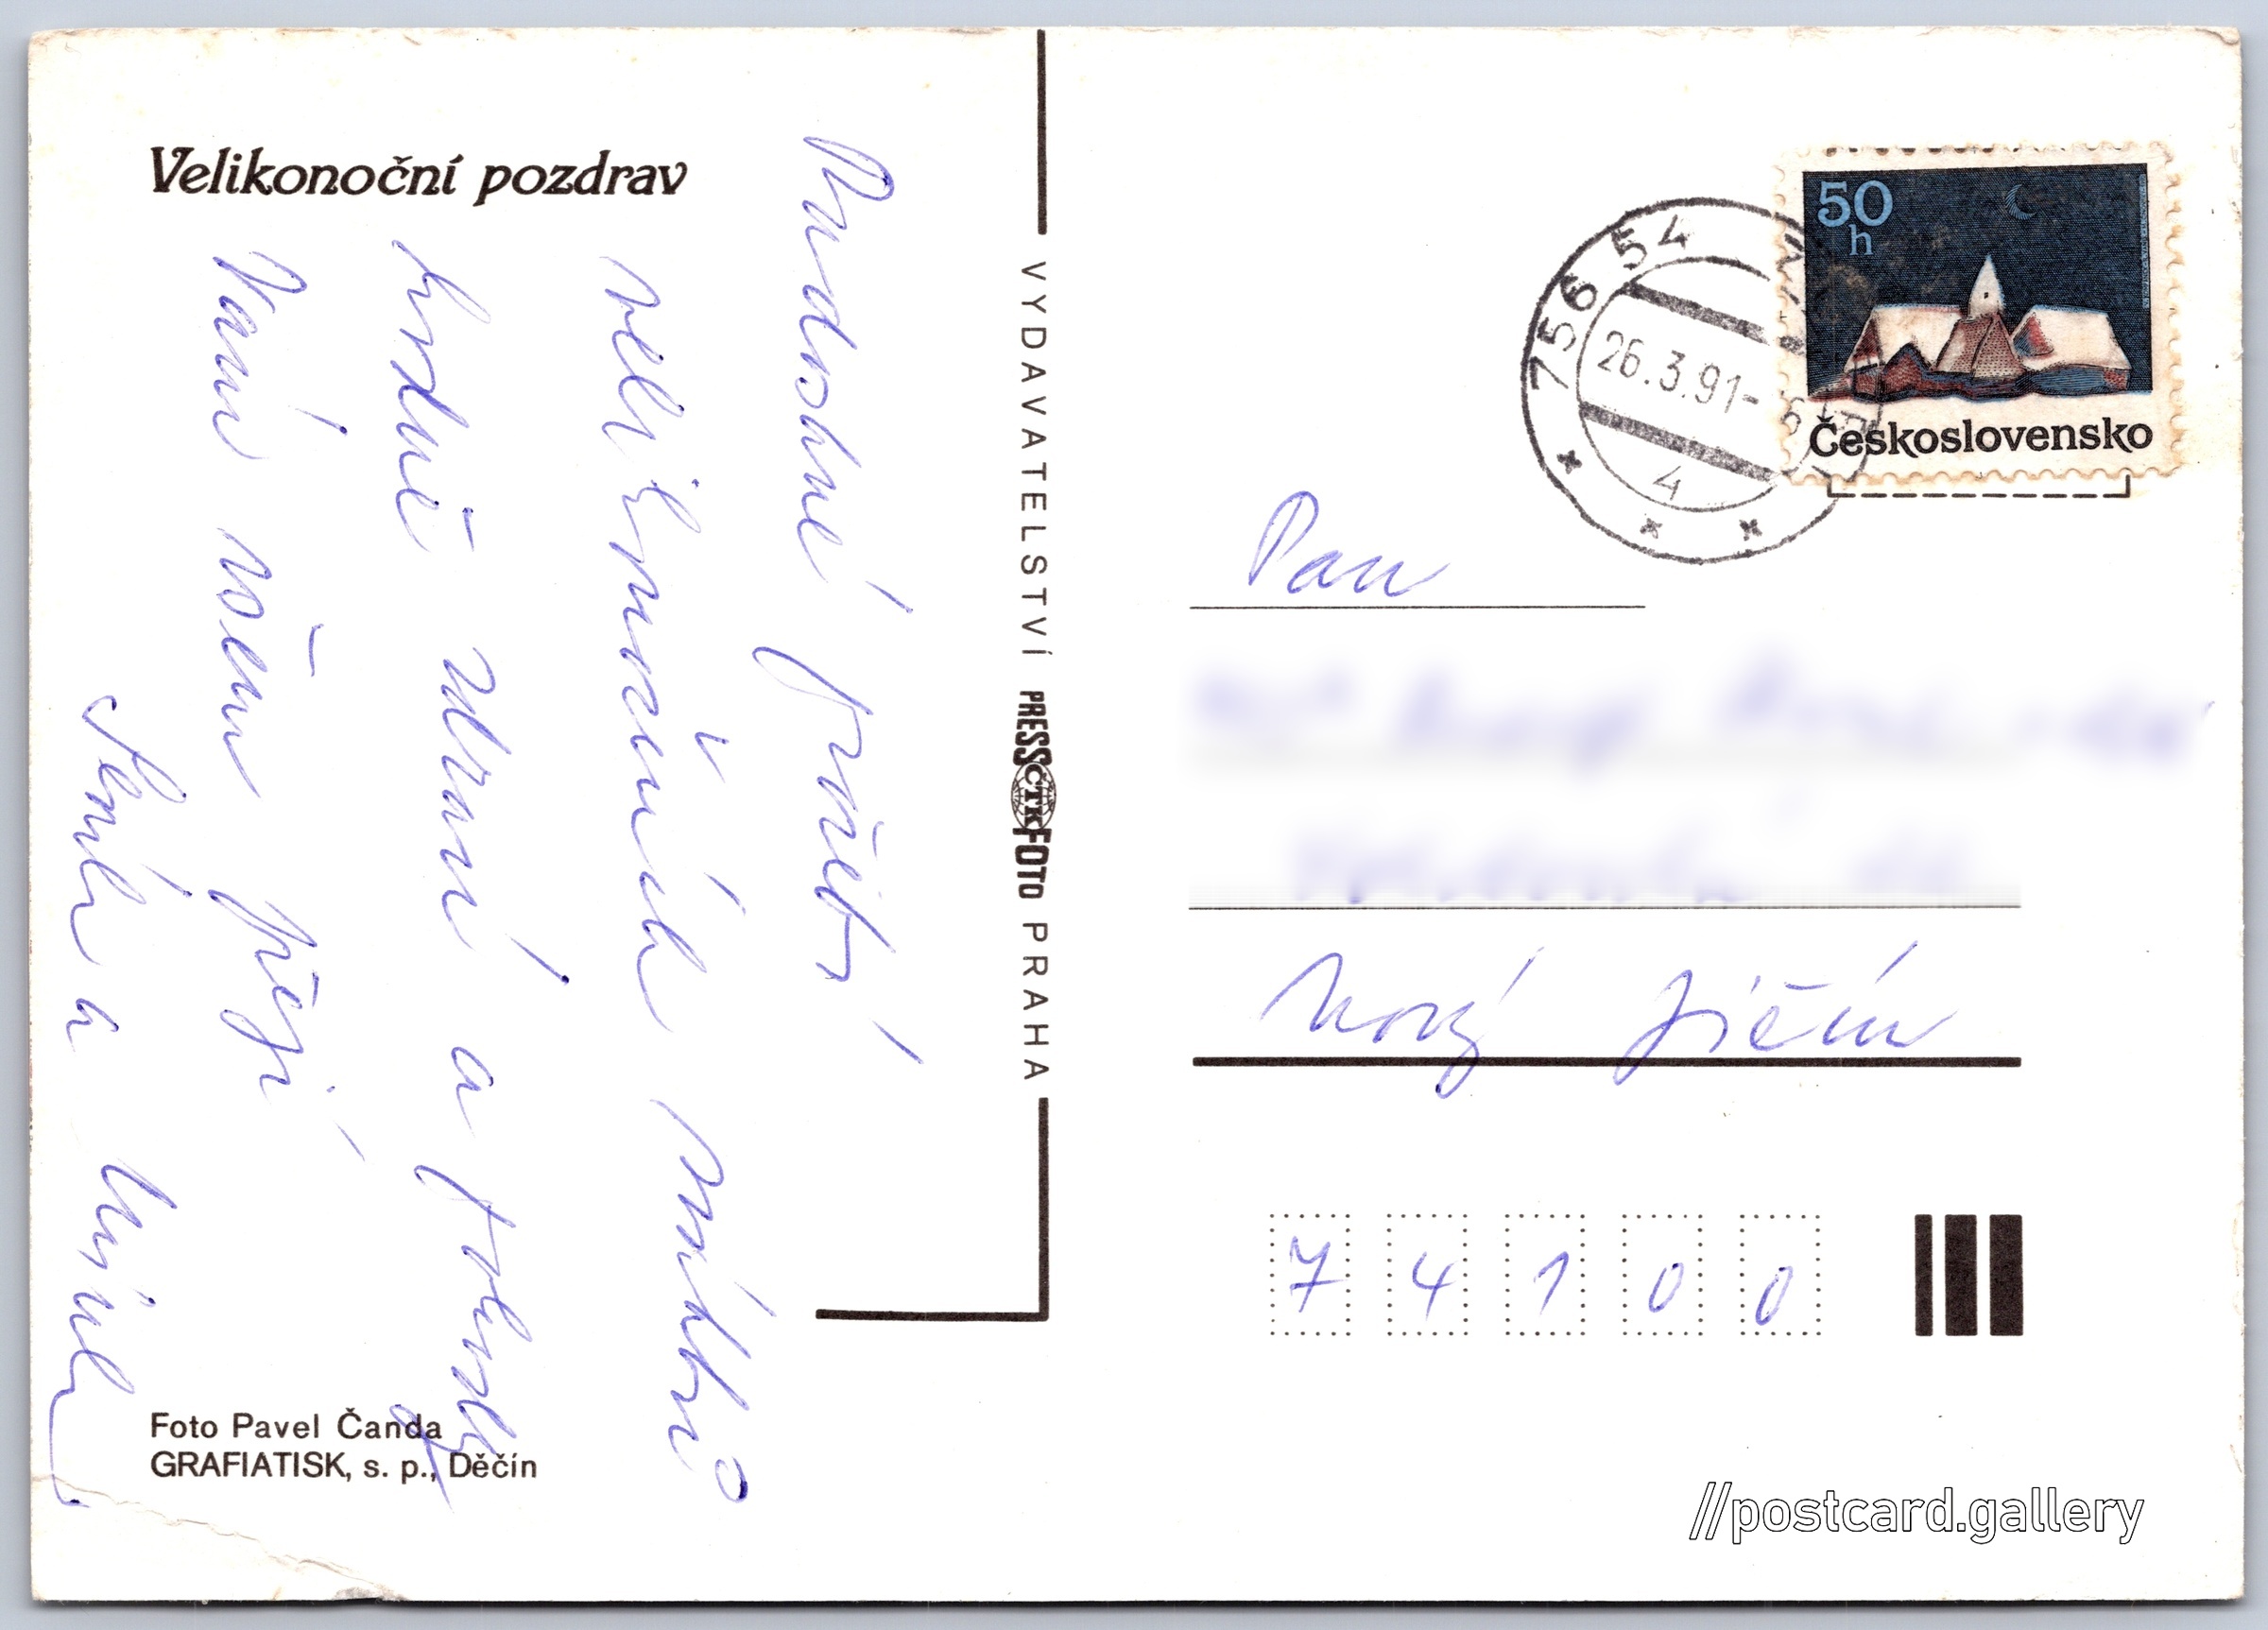 Velikonoční pozdrav
Radostné prožití
velikonočních svátků
hodně zdraví a pohody
Vám všem přejí
a
Foto Pavel Čanda
GRAFIATISK, s. p., Děčín
VYDAVATELSTVÍ PRESSFOTO PRAHA
ČTK
756 54
26.3.91-6
4
50
h
Československo
Pan
Nový Jičín
7 4 1 0 0
//postcard.gallery